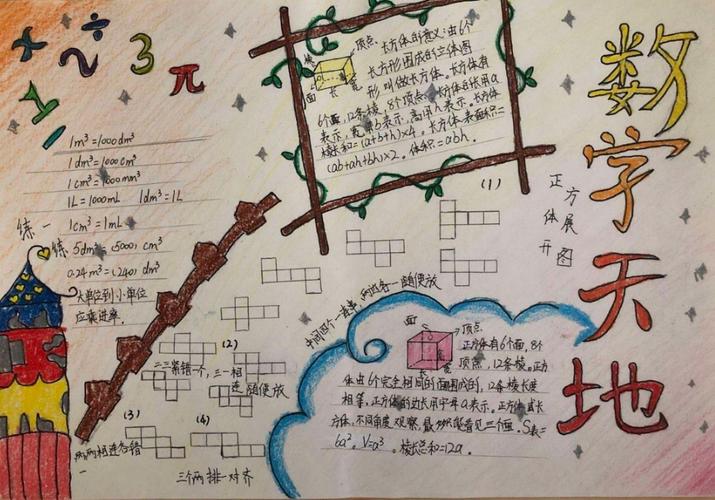 数学天地
1m³=1000dm³
1dm³=1000cm³
1cm³=1000mm³
1L=1000mL 1dm³=1L
1cm³=1mL
练一练
5dm³=(5000)cm³
0.24m³=(240)dm³
大单位到小单位
应乘进率.
顶点.
面
长
宽
长方体的意义:由6个
长方形围成的立体图
形叫做长方体.长方体有
6个面,12条棱,8个顶点.长方体的长用a
表示,宽用b表示,高用h表示.长方体
棱长和=(a+b+h)×4.长方体表面积=
(ab+ah+bh)×2.体积=abh.
(1)
正方体展开图
中间四个一连串,两边各一随便放
(2)
二三紧错一个,三一相连随便放
(3)
两两相连各错一
(4)
三个两排一对齐
面
顶点
正方体有6个面,8个
顶点,12条棱.正方
体由6个完全相同的面围成的,12条棱长度
相等,正方体的边长用字母a表示.正方体或长
方体,不同角度观察,最多只能看见三个面.S表=
6a².V=a³.棱长总和=12a.